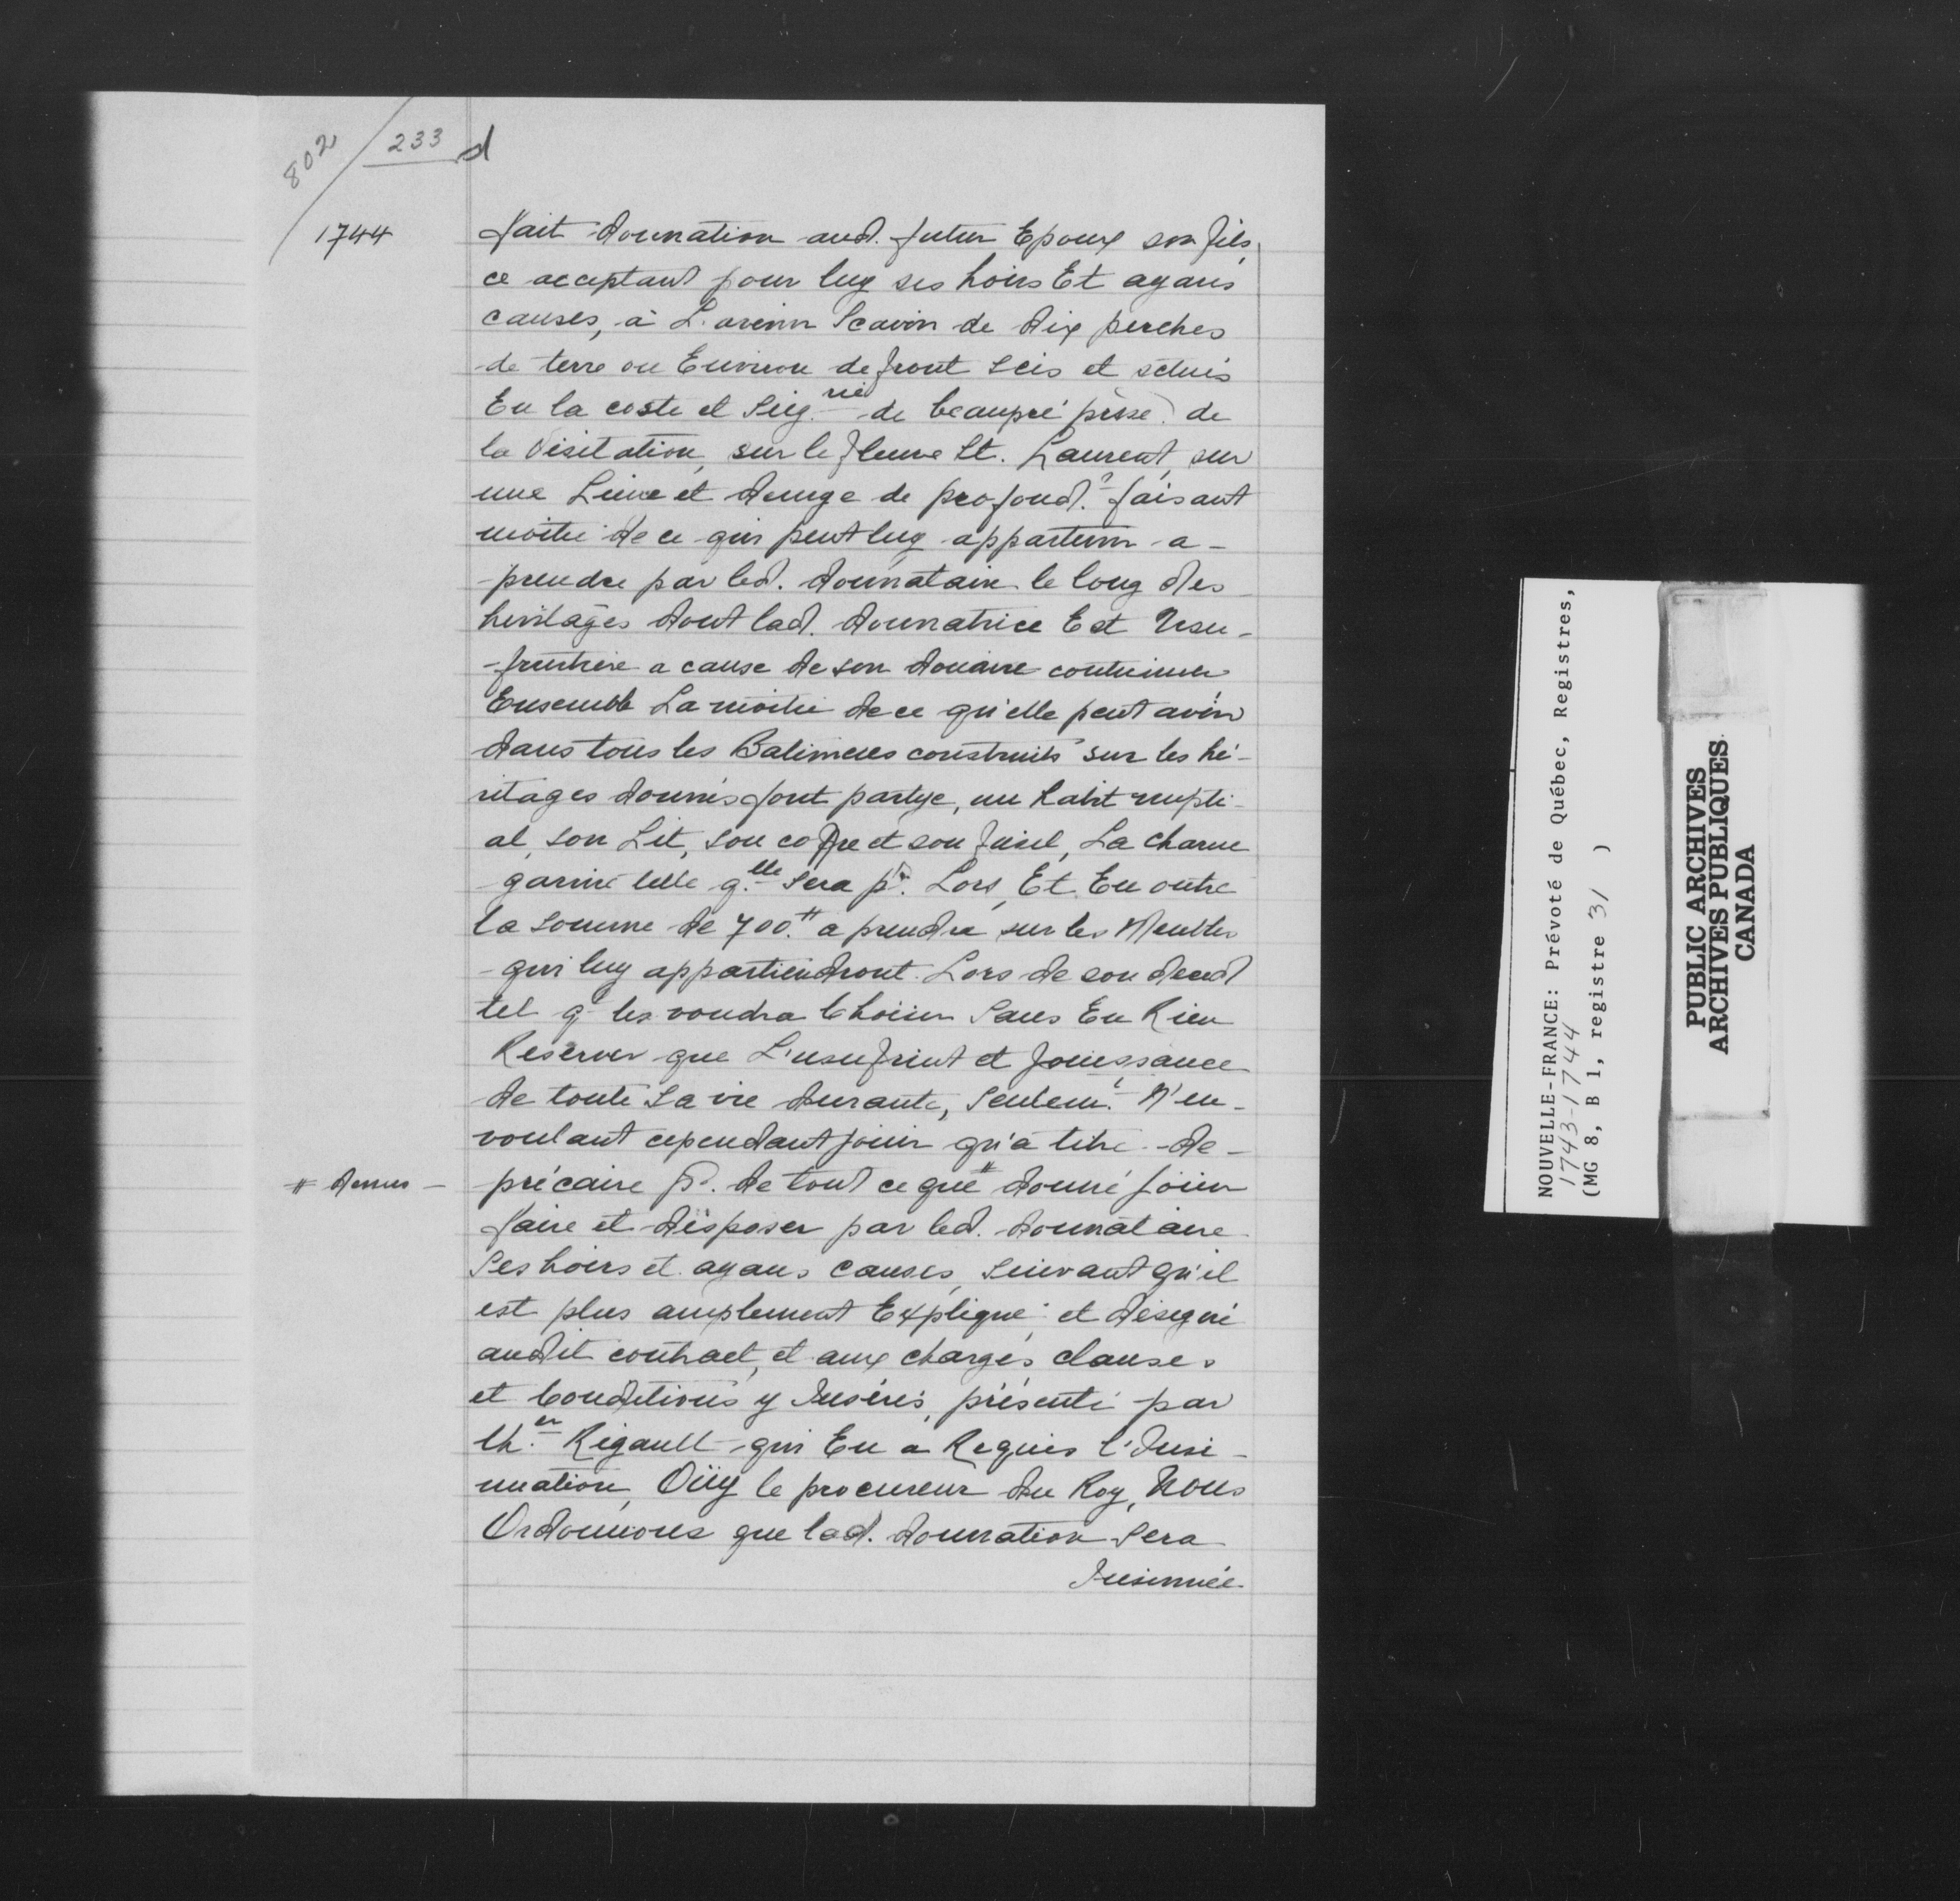 802 / 233 d
1744
fait donnation aud. futur Epoux son fils,
ce acceptant pour luy ses hoirs Et ayans
causes, à L'avenir Scavoir de dix perches
de terre ou Environ de front scis et scitués
En la coste et Seig.rie de beaupré psse. de
la Visitation, sur le fleuve St. Laurent, sur
une Lieue et demye de profond.r faisant
moitié de ce qui peut luy appartenir a-
prendre par led. donnataire le long des
heritages dont lad. donnatrice Est Usu-
-fruitiere a cause de son douaire coutumier
Ensemble La moitié de ce qu'elle peut avoir
dans tous les Batimens construits sur les hé-
ritages donnés font partye, un habit nupti-
al, son Lit, son coffre et son fusil, La charue
garnie telle q.lle sera pr. Lors, Et En outre
la somme de 700.# a prendre sur les Meubles
qui luy appartiendront Lors de son deced
tel q' les voudra Choisir Sans En Rien
Reserver que L'usufruit et jouissance
de toute sa vie durante, seulem.t N'en-
voulant cependant jouir qu'a titre de-
précaire pr. de tout ce que # donné jouir
# dessus -
faire et disposer par led. donnataire
Ses hoirs et ayans causes, suivant qu'il
est plus amplement Expliqué et désigné
audit contract, et aux charges clauses
et Conditions y Inserés, présenté par
Ch.er Rigault qui En a Requis l'Insi-
nuation, Oüy le procureur du Roy, Nous
Ordonnons que lad. donnation Sera
Insinuée
NOUVELLE-FRANCE: Prévoté de Québec, Registres,
1743-1744
(MG 8, B 1, registre 31 )
PUBLIC ARCHIVES
ARCHIVES PUBLIQUES
CANADA